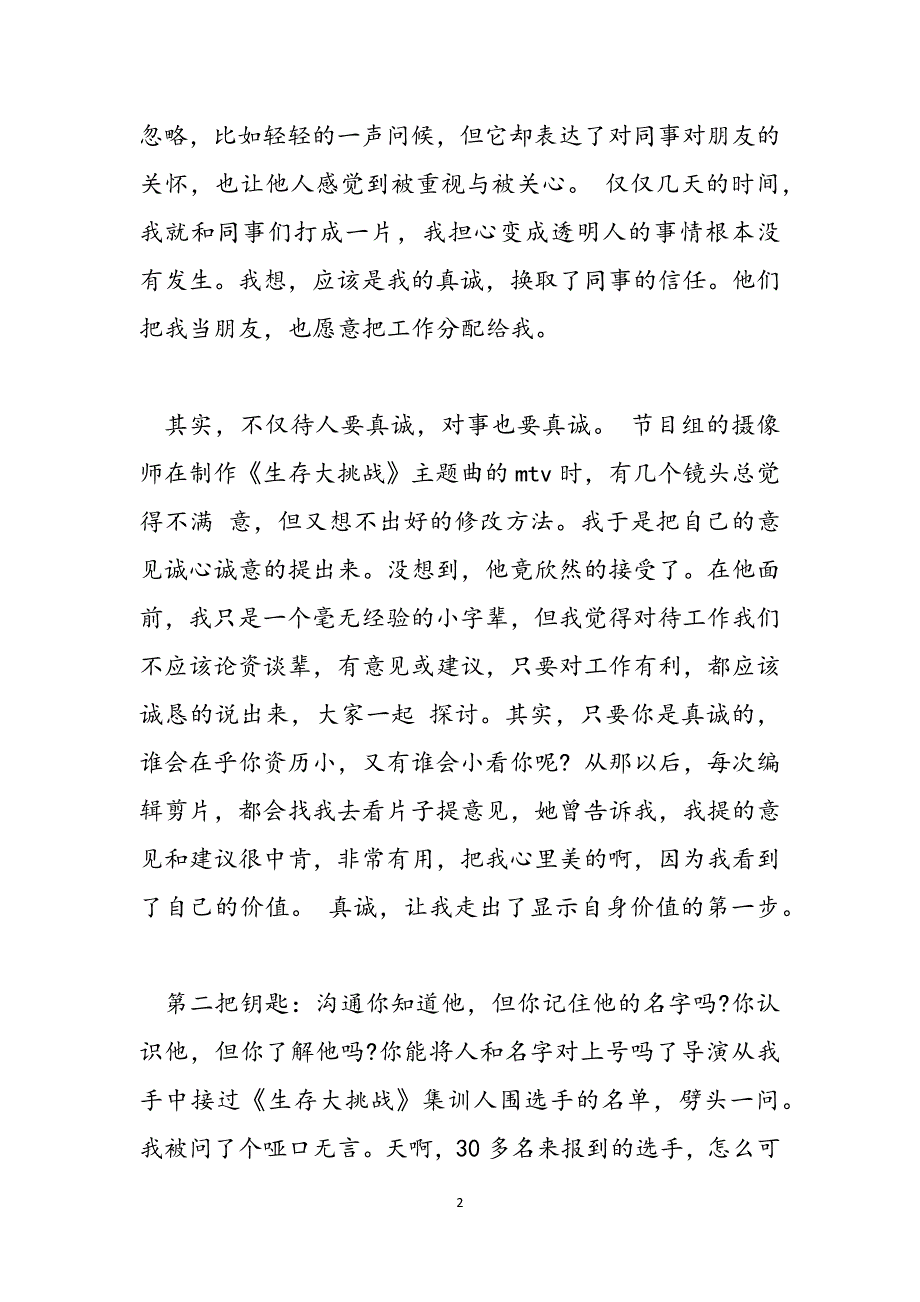 忽略，比如轻轻的一声问候，但它却表达了对同事对朋友的
关怀，也让他人感觉到被重视与被关心。 仅仅几天的时间，
我就和同事们打成一片，我担心变成透明人的事情根本没
有发生。我想，应该是我的真诚，换取了同事的信任。他们
把我当朋友，也愿意把工作分配给我。
其实，不仅待人要真诚，对事也要真诚。 节目组的摄像
师在制作《生存大挑战》主题曲的 mtv 时，有几个镜头总觉
得不满 意，但又想不出好的修改方法。我于是把自己的意
见诚心诚意的提出来。没想到，他竟欣然的接受了。在他面
前，我只是一个毫无经验的小字辈，但我觉得对待工作我们
不应该论资谈辈，有意见或建议，只要对工作有利，都应该
诚恳的说出来，大家一起 探讨。其实，只要你是真诚的，
谁会在乎你资历小，又有谁会小看你呢? 从那以后，每次编
辑剪片，都会找我去看片子提意见，她曾告诉我，我提的意
见和建议很中肯，非常有用，把我心里美的啊，因为我看到
了自己的价值。 真诚，让我走出了显示自身价值的第一步。
第二把钥匙：沟通你知道他，但你记住他的名字吗?你认
识他，但你了解他吗?你能将人和名字对上号吗了导演从我
手中接过《生存大挑战》集训人围选手的名单，劈头一问。
我被问了个哑口无言。天啊，30 多名来报到的选手，怎么可
2